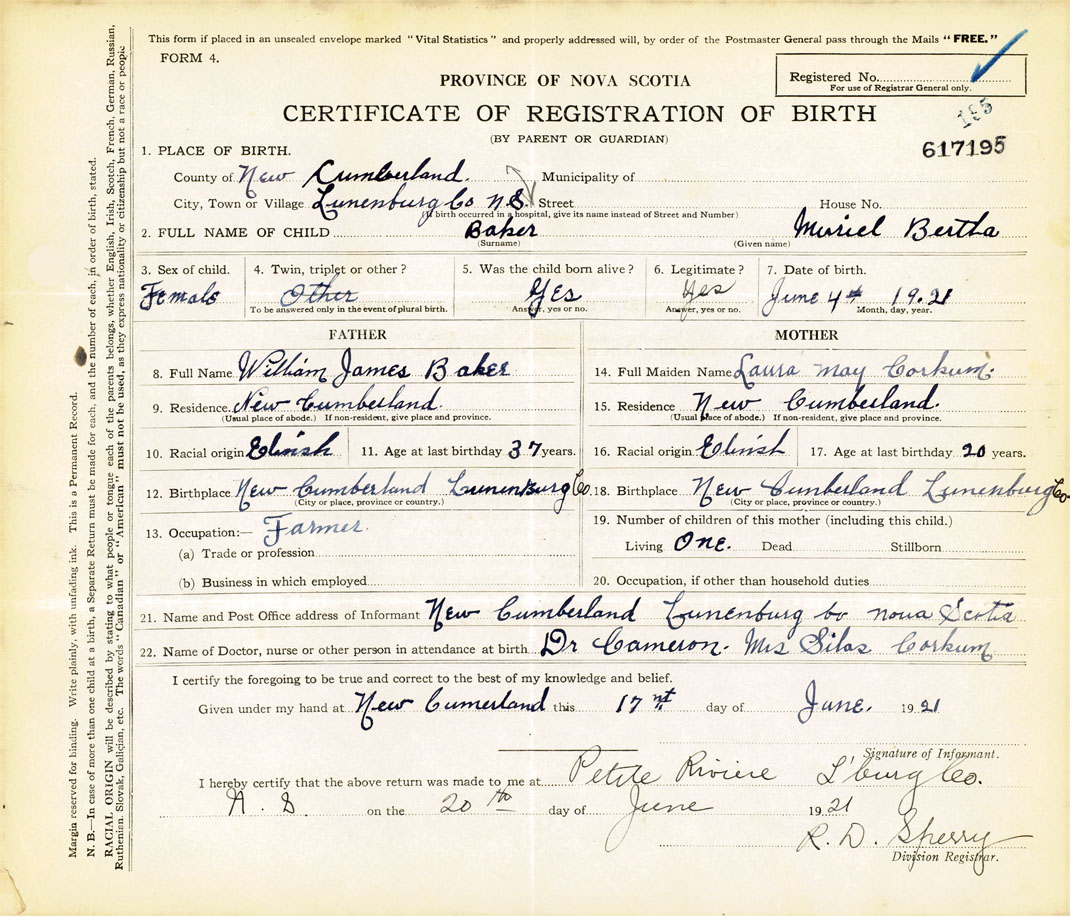 This form if placed in an unsealed envelope marked "Vital Statistics" and properly addressed will, by order of the Postmaster General pass through the Mails "FREE."
FORM 4.
PROVINCE OF NOVA SCOTIA
Registered No.
For use of Registrar General only.
CERTIFICATE OF REGISTRATION OF BIRTH
195
(BY PARENT OR GUARDIAN)
617195
1. PLACE OF BIRTH.
County of New Cumberland. Municipality of
City, Town or Village Lunenburg Co N.S. Street House No.
(If birth occurred in a hospital, give its name instead of Street and Number)
2. FULL NAME OF CHILD Baker Muriel Bertha
(Surname) (Given name)
3. Sex of child. 4. Twin, triplet or other? 5. Was the child born alive? 6. Legitimate? 7. Date of birth.
Female Other Yes Yes June 4th 1921
To be answered only in the event of plural birth. Answer, yes or no. Answer, yes or no. Month, day, year.
FATHER MOTHER
8. Full Name William James Baker 14. Full Maiden Name Laura May Corkum.
9. Residence New Cumberland. 15. Residence New Cumberland.
(Usual place of abode.) If non-resident, give place and province. (Usual place of abode.) If non-resident, give place and province.
10. Racial origin 11. Age at last birthday 37 years. 16. Racial origin 17. Age at last birthday 20 years.
12. Birthplace New Cumberland Lunenburg Co. 18. Birthplace New Cunberland Lunenburg Co.
(City or place, province or country.) (City or place, province or country.)
13. Occupation:— Farmer. 19. Number of children of this mother (including this child.)
(a) Trade or profession Living One. Dead Stillborn
(b) Business in which employed 20. Occupation, if other than household duties
21. Name and Post Office address of Informant New Cumberland Lunenburg co nova Scotia
22. Name of Doctor, nurse or other person in attendance at birth Dr Cameron. Mrs Silas Corkum
I certify the foregoing to be true and correct to the best of my knowledge and belief.
Given under my hand at New Cumerland this 17 nt day of June. 1921
Signature of Informant.
I hereby certify that the above return was made to me at Petite Riviere L'burg Co.
N. S. on the 20th day of June 1921
R. D. Sperry
Division Registrar.
Margin reserved for binding. Write plainly, with unfading ink. This is a Permanent Record.
N. B.—In case of more than one child at a birth, a Separate Return must be made for each, and the number of each, in order of birth, stated.
RACIAL ORIGIN will be described by stating to what people or tongue each of the parents belongs, whether English, Irish, Scotch, French, German, Russian,
Ruthenian, Slovak, Galician, etc. The words "Canadian" or "American" must not be used, as they express nationality or citizenship but not a race or people